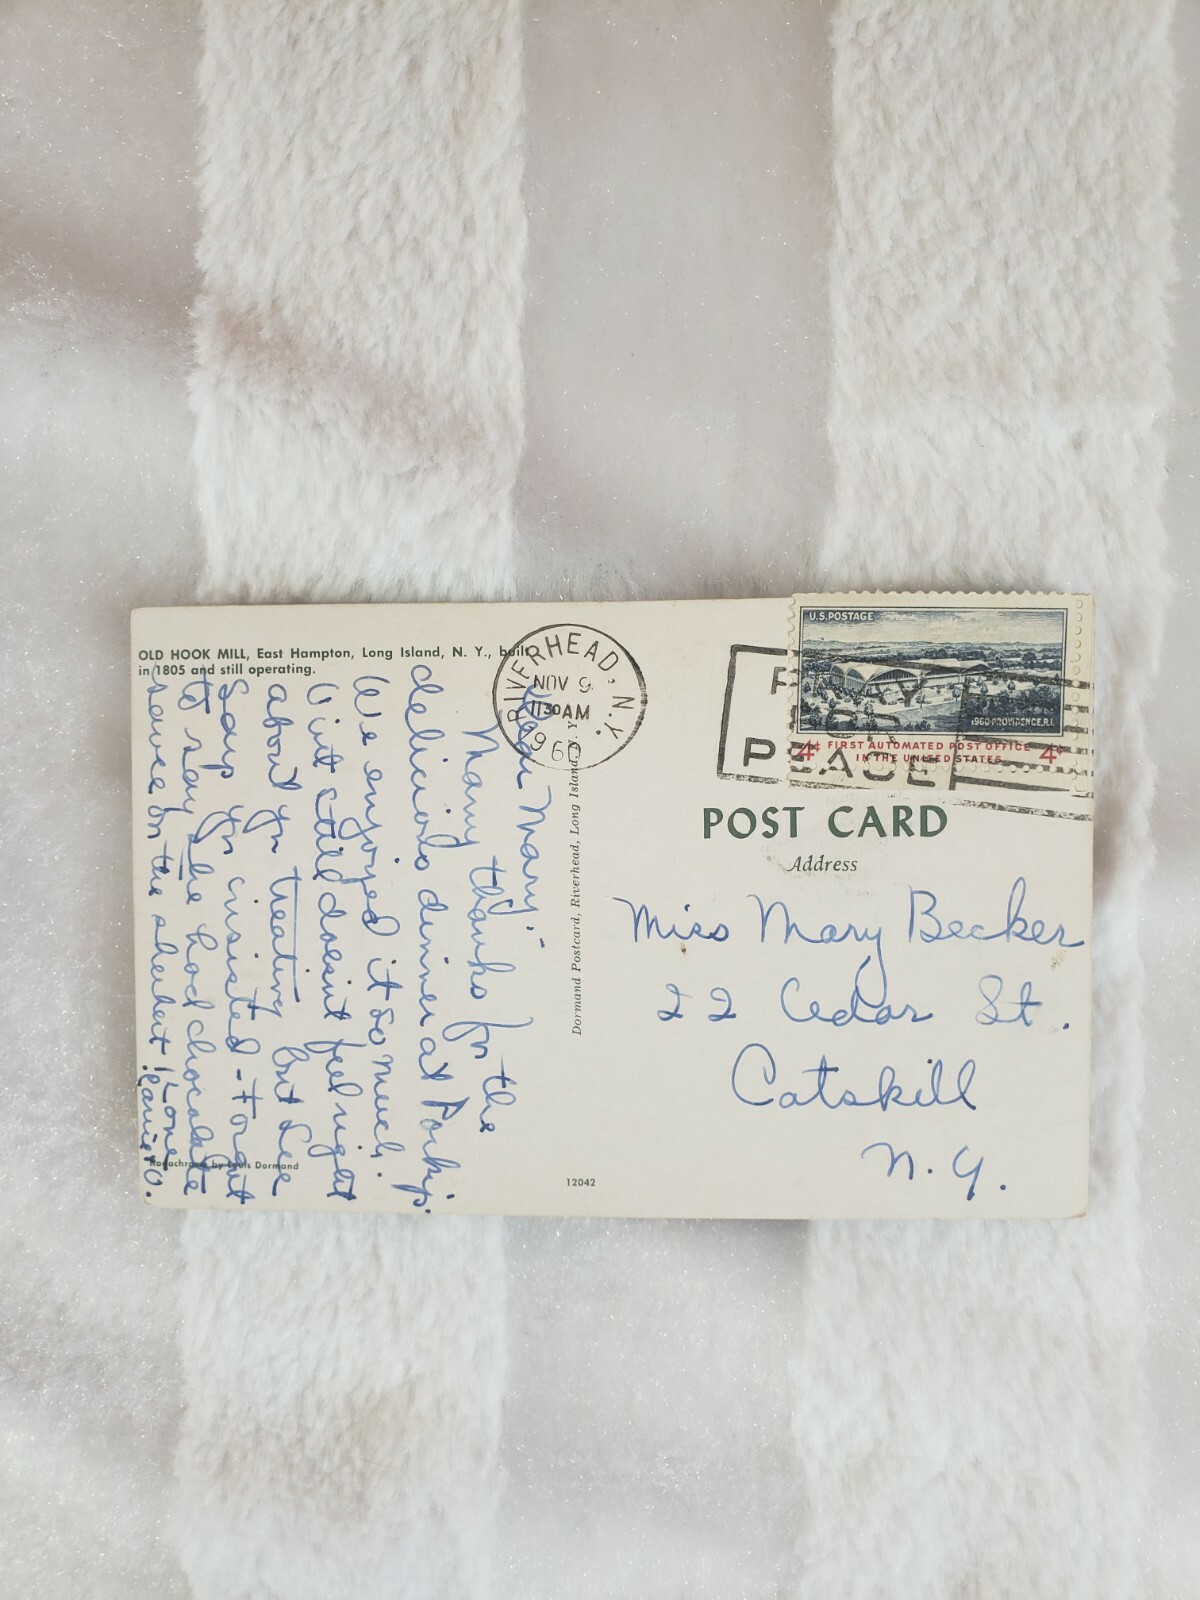 OLD HOOK MILL, East Hampton, Long Island, N. Y., built
in 1805 and still operating.
RIVERHEAD, N.Y.
NOV 9
11 30 AM
196
U.S. POSTAGE
1960·PROVIDENCE, R.I.
4¢ FIRST AUTOMATED POST OFFICE 4¢
IN THE UNITED STATES
PRAY
FOR
PEACE
POST CARD
Address
Miss Mary Becker
22 Cedar St.
Catskill
N. Y.
Dear Mary:-
Many thanks for the
delicious dinner at Porky's.
We enjoyed it so much.
Virt still doesn't feel right
about yr treating but Lee
says yr insisted - Forgot
to say she had chocolate
sauce on the sherbet! Love,
Dormand Postcard, Riverhead, Long Island, N. Y.
Kodachrome by Louis Dormand
12042